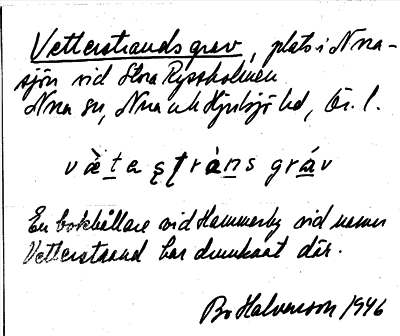 Vetterstrands grav, plats i Nora-
sjön vid Stora Ryssholmen
Nora sn, Nora och Hjulsjö hd, Ör. l.
væ̀te ştràns gráv
En bokhållare vid Hammarby vid namn
Vetterstrand har drunknat där.
Bo Halvarson 1946